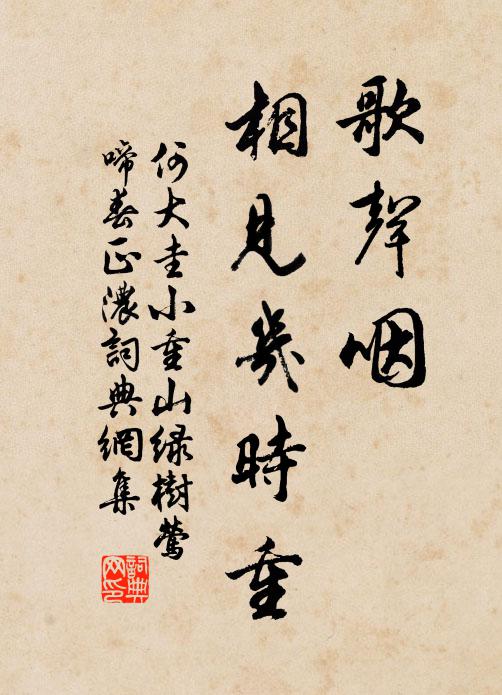 歌聲咽
相見幾時重
何大圭小重山綠樹鶯
啼春正濃詞典網集
詞典网印